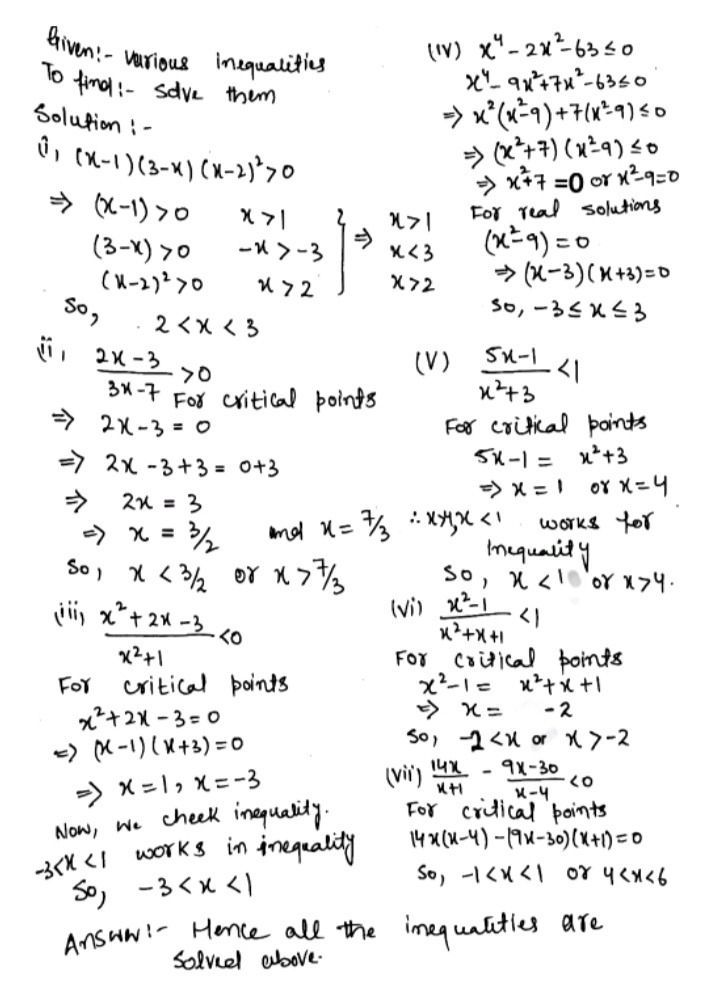 Given:- various inequalities
To find:- solve them
Solution:-
(i) (x-1)(3-x)(x-2)²>0
⇒ (x-1)>0 x>1 ⇒ x>1
(3-x)>0 -x>-3 x<3
(x-2)²>0 x>2 x>2
So, 2<x<3
(ii) (2x-3)/(3x-7) >0
For critical points
⇒ 2x-3=0
⇒ 2x-3+3=0+3
⇒ 2x=3
⇒ x=3/2 and x=7/3
So, x<3/2 or x>7/3
(iii) (x²+2x-3)/(x²+1) <0
For critical points
x²+2x-3=0
⇒ (x-1)(x+3)=0
⇒ x=1, x=-3
Now, we check inequality.
-3<x<1 works in inequality
So, -3<x<1
(iv) x⁴-2x²-63≤0
x⁴-9x²+7x²-63≤0
⇒ x²(x²-9)+7(x²-9)≤0
⇒ (x²+7)(x²-9)≤0
⇒ x²+7=0 or x²-9=0
For real solutions
(x²-9)=0
⇒ (x-3)(x+3)=0
So, -3≤x≤3
(V) (5x-1)/(x²+3) <1
For critical points
5x-1= x²+3
⇒ x=1 or x=4
∴ x<1 works for
inequality
So, x<1 or x>4.
(vi) (x²-1)/(x²+x+1) <1
For critical points
x²-1= x²+x+1
⇒ x= -2
So, -2<x or x>-2
(vii) 14x/(x+1) - (9x-30)/(x-4) <0
For critical points
14x(x-4)-(9x-30)(x+1)=0
So, -1<x<1 or 4<x<6
Answer:- Hence all the inequalities are
solved above.